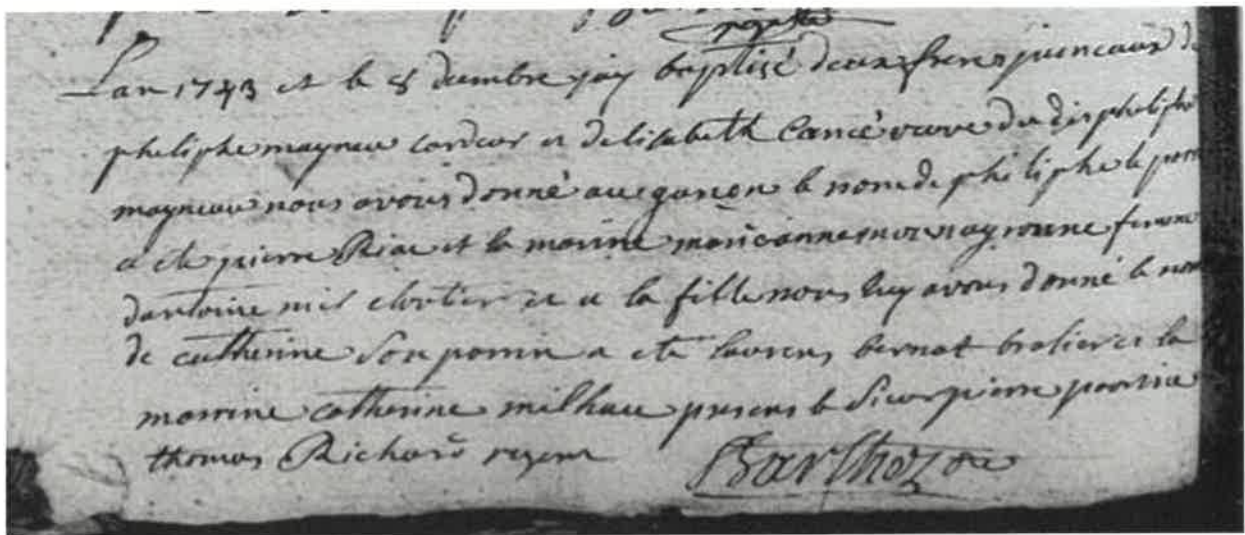 Lan 1743 et le 8 dumbre jay baptisé deux freres jumeaux de
pheliphe magneau cordeur et delisabeth Cancé veuve du dit pheliphe
magneau nous avons donné au garson le nom de philiphe le porin
a ete pierre Riac et la marine marie anne femme
dantoine mil clotier et a la fille nous luy avons donné le nom
de catherine son porin a ete laurens bernat brasier et la
marrine catherine milhau presens le sieur pierre
thomas Richard regent Barthez